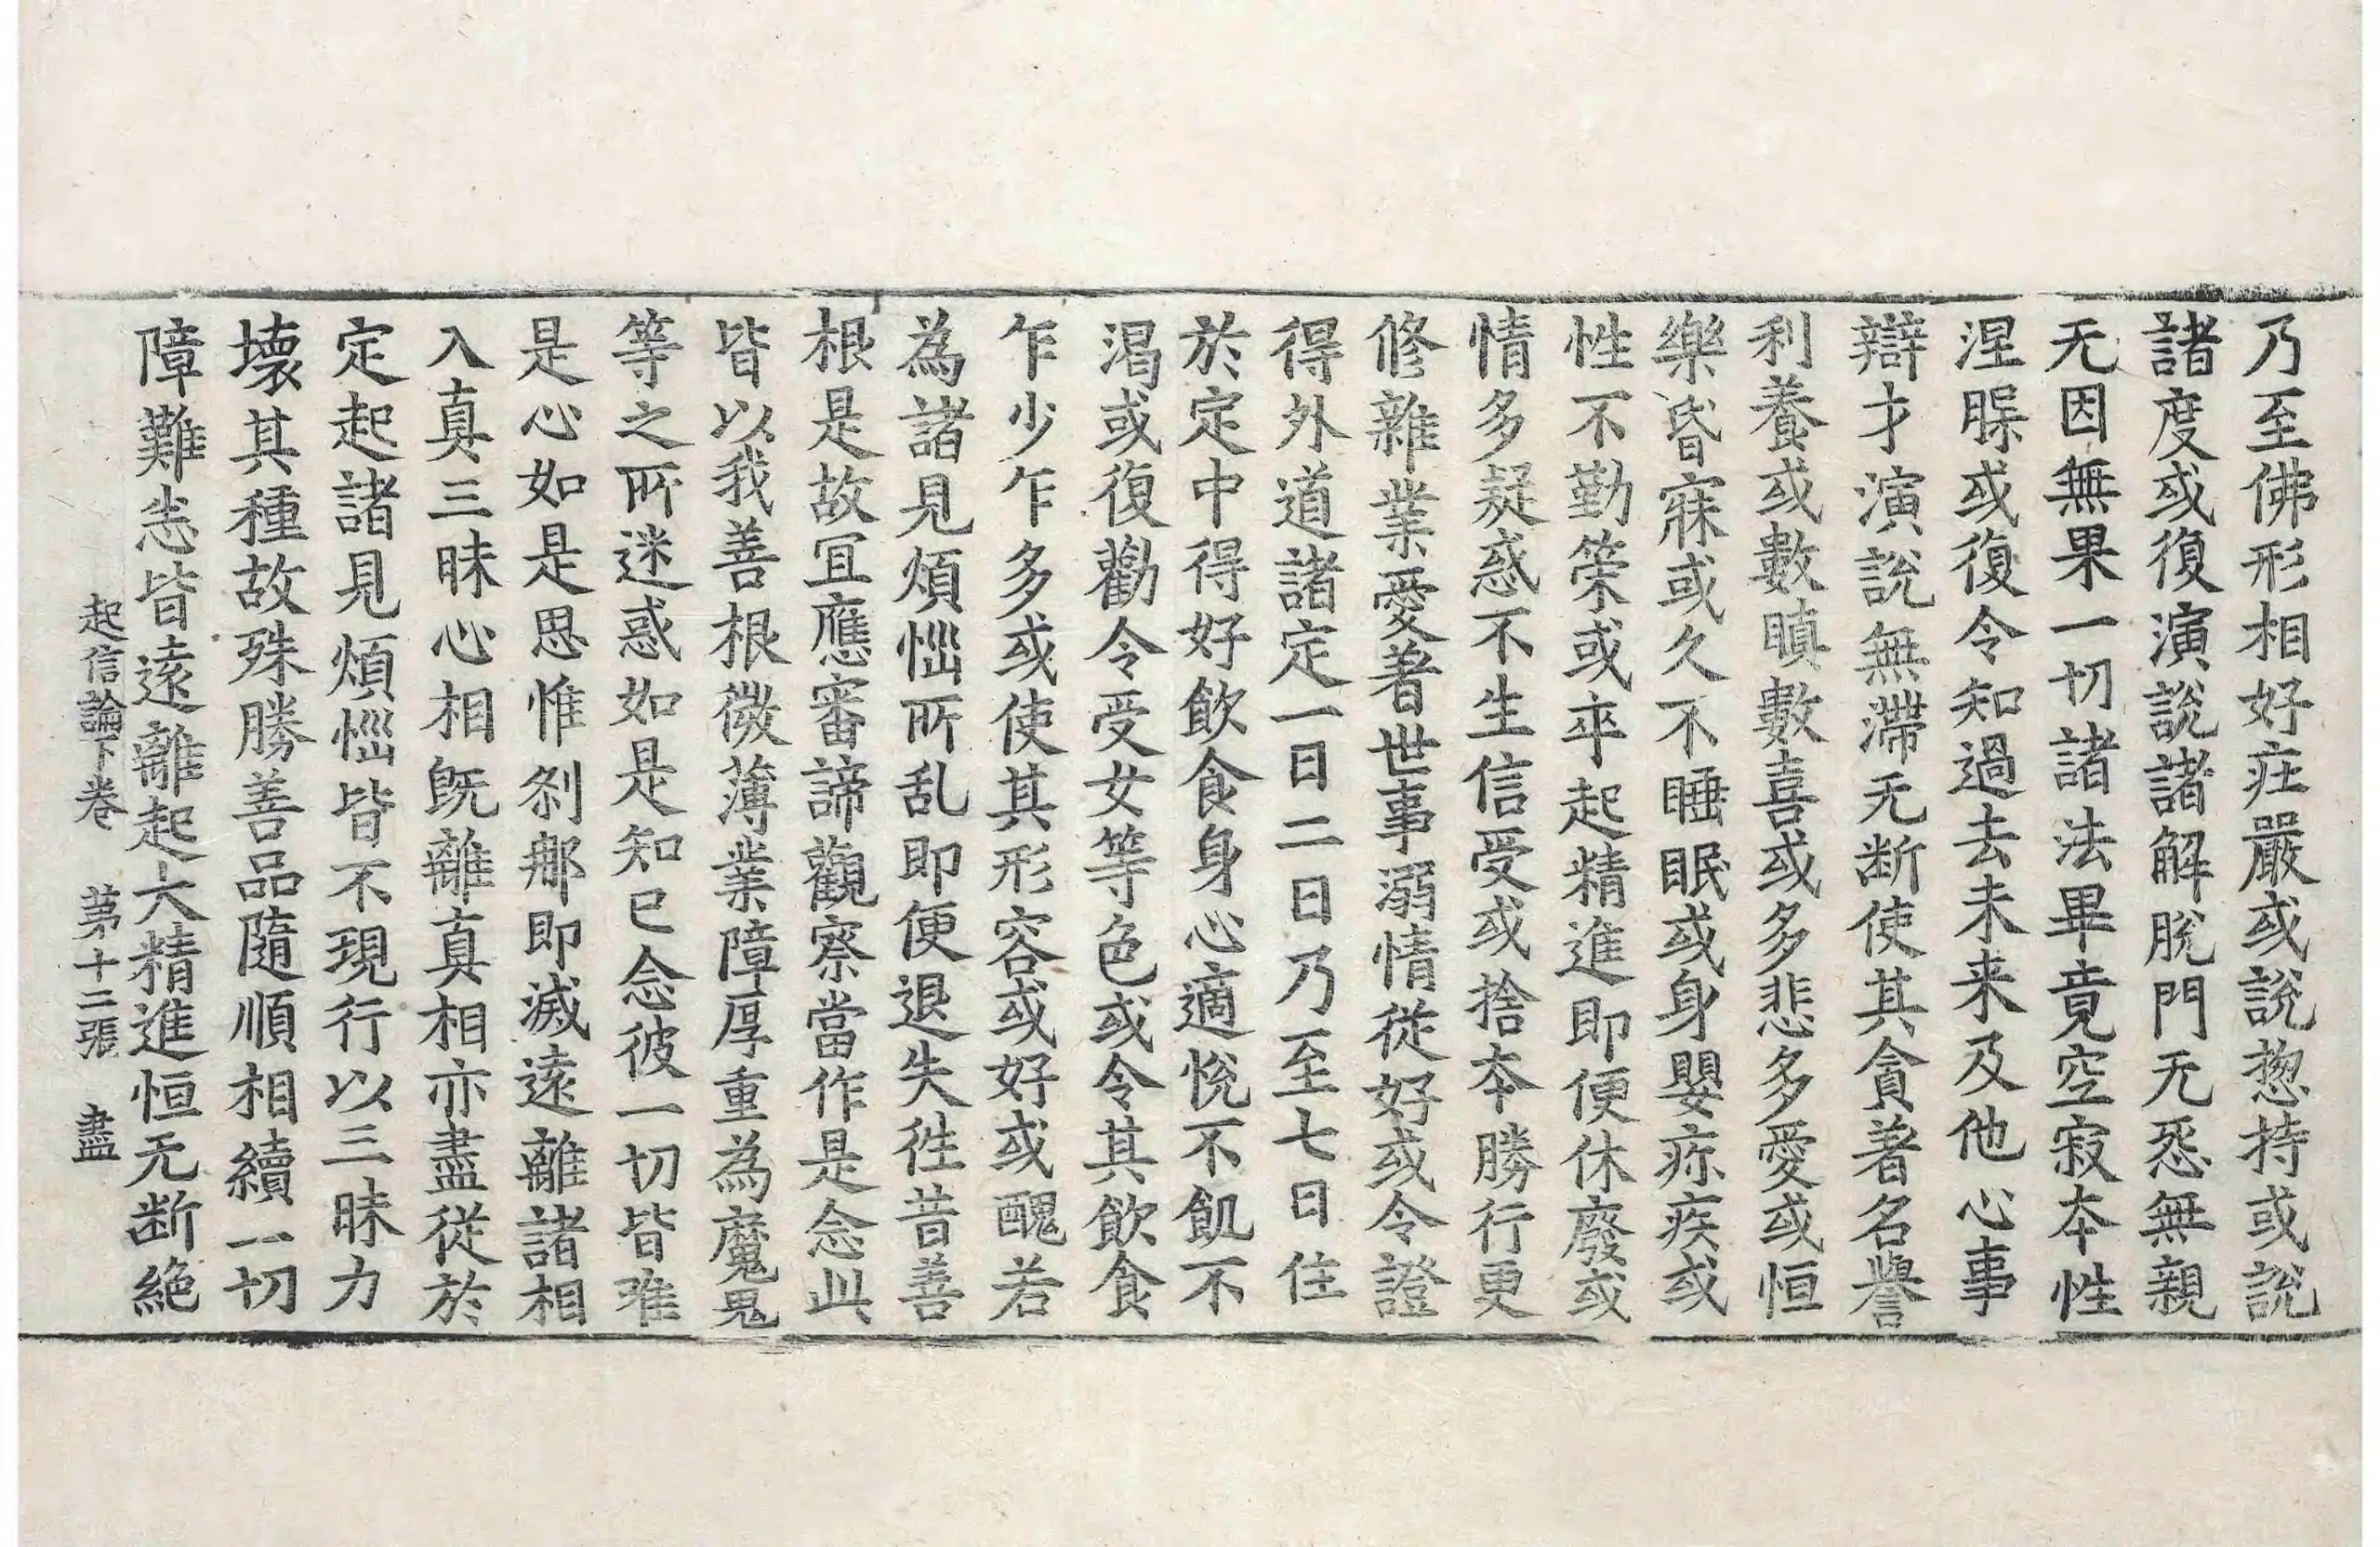 乃至佛形相好庄嚴或說揔持或說
諸度或復演說諸解脫門无惌無親
无因無果一切諸法畢竟空寂本性
涅槃或復令知過去未来及他心事
辯才演說無滯无断使其貪著名譽
利養或數瞋數喜或多悲多愛或恒
樂昏寐或久不睡眠或身嬰疹疾或
性不勤䇿或卒起精進即便休廢或
情多疑惑不生信受或捨本勝行更
修雜業愛著世事溺情從好或令證
得外道諸定一日二日乃至七日住
於定中得好飲食身心適悅不飢不
渴或復勸令受女等色或令其飲食
乍少乍多或使其形容或好或醜若
為諸見煩惱所乱即便退失往昔善
根是故冝應審諦觀察當作是念此
皆以我善根微薄業障厚重為魔鬼
等之所迷惑如是知已念彼一切皆唯
是心如是思惟刹那即滅遠離諸相
入真三昧心相旣離真相亦盡從於
定起諸見煩惱皆不現行以三昧力
壞其種故殊勝善品隨順相續一切
障難悉皆遠離起大精進恒无断絶
起信論下卷 苐十二張 盡